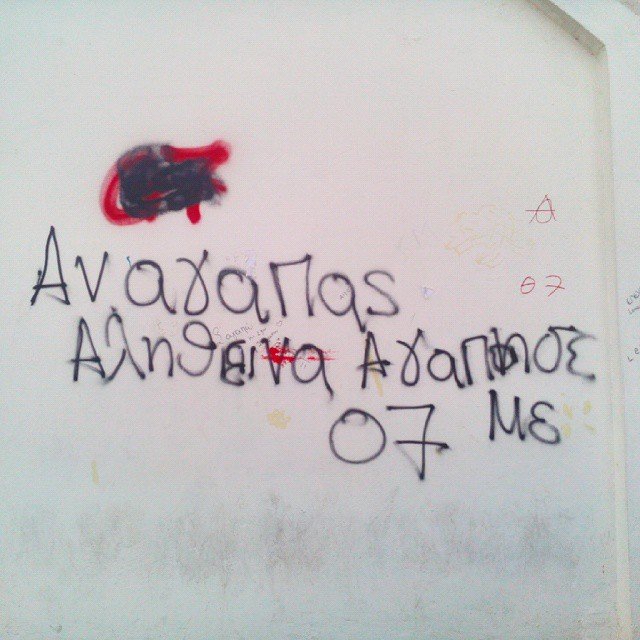 Αν αγαπας
Αληθεινα Αγαπησε
07 Με
A
07